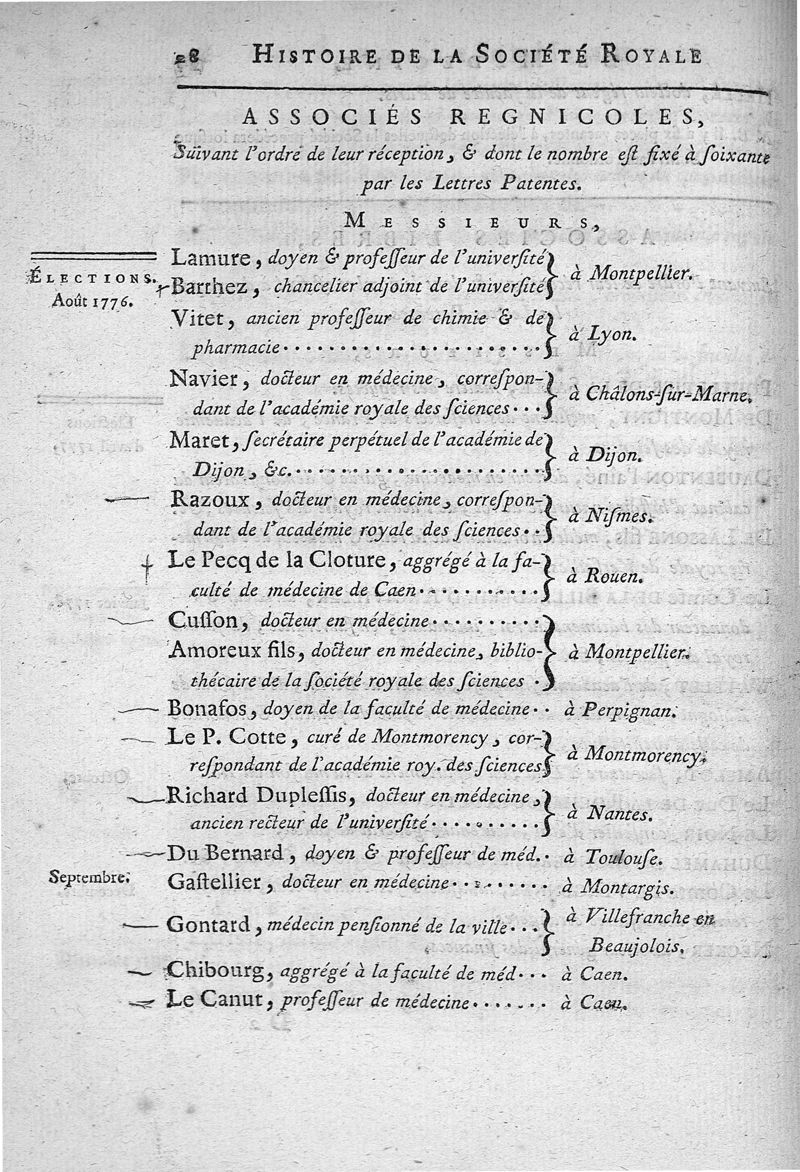 28 HISTOIRE DE LA SOCIÉTÉ ROYALE
ASSOCIÉS REGNICOLES,
Suivant l'ordre de leur réception, & dont le nombre eſt fixé à ſoixante
par les Lettres Patentes.
MESSIEURS,
ÉLECTIONS.
Août 1776.
Lamure, doyen & profeſſeur de l'univerſité
Barthez, chancelier adjoint de l'univerſité } à Montpellier.
Vitet, ancien profeſſeur de chimie & de
pharmacie . . . . . . . . . . . . . . . . . . . . } à Lyon.
Navier, docteur en médecine, correſpon-
dant de l'académie royale des ſciences . . . } à Châlons-ſur-Marne.
Maret, ſecrétaire perpétuel de l'académie de
Dijon, &c. . . . . . . . . . . . . . . . . . . . } à Dijon.
Razoux, docteur en médecine, correſpon-
dant de l'académie royale des ſciences . . } à Niſmes.
Le Pecq de la Cloture, aggrégé à la fa-
culté de médecine de Caen . . . . . . . . . . } à Rouen.
Cuſſon, docteur en médecine . . . . . . . . .
Amoreux fils, docteur en médecine, biblio- } à Montpellier.
thécaire de la ſociété royale des ſciences .
Bonafos, doyen de la faculté de médecine . . à Perpignan.
Le P. Cotte, curé de Montmorency, cor-
reſpondant de l'académie roy. des ſciences } à Montmorency.
Richard Dupleſſis, docteur en médecine,
ancien recteur de l'univerſité . . . . . . . . . } à Nantes.
Du Bernard, doyen & profeſſeur de méd. . à Toulouſe.
Septembre.
Gaſtellier, docteur en médecine . . . . . . . à Montargis.
Gontard, médecin penſionné de la ville . . . } à Villefranche en
Beaujolois.
Chibourg, aggrégé à la faculté de méd . . . à Caen.
Le Canut, profeſſeur de médecine . . . . . . . à Caen.